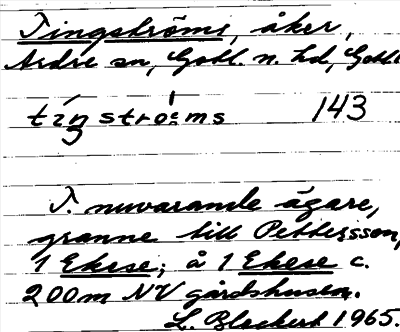 Tingströms, åker,
Ardre sn, Gotl. n. hd, Gotl.
tíŋströ̀ms 143
T. nuvarande ägare,
granne till Pettersson,
1 Ekese; å 1 Ekese c.
200m NV gårdshusen.
L. Blockert 1965.